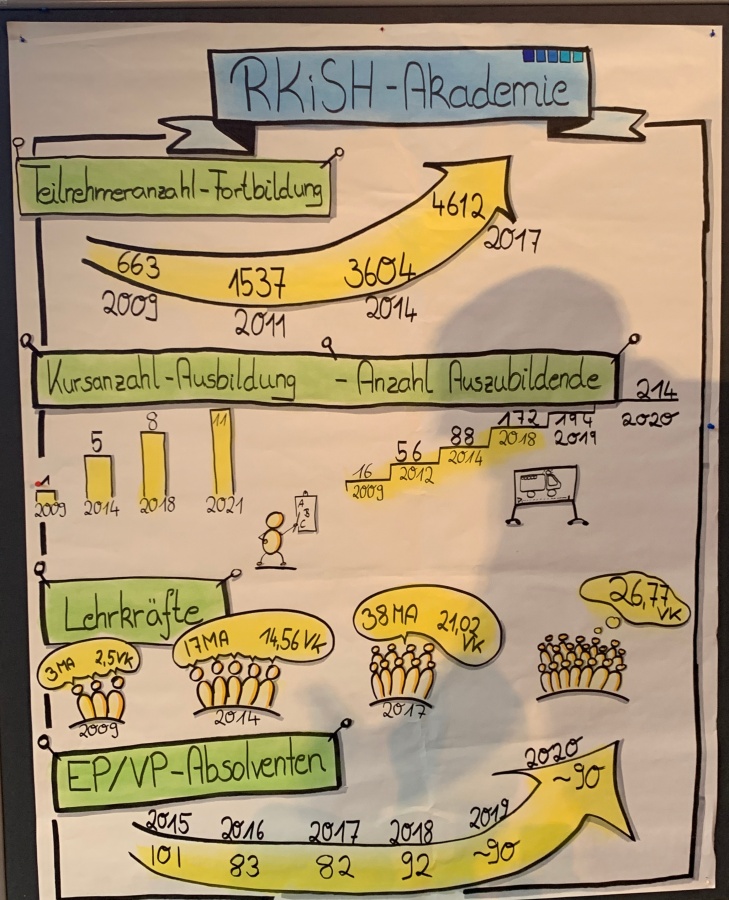 RKiSH-Akademie
Teilnehmeranzahl-Fortbildung
663 1537 3604 4612
2009 2011 2014 2017
Kursanzahl-Ausbildung - Anzahl Auszubildende
1 5 8 11
2009 2014 2018 2021
16 56 88 172 194 214
2009 2012 2014 2018 2019 2020
A
B
C
Lehrkräfte
3MA 2,5VK
2009
17MA 14,56VK
2014
38MA 21,02
VK
2017
26,77
VK
EP/VP-Absolventen
2015 2016 2017 2018 2019 2020
101 83 82 92 ~90 ~90